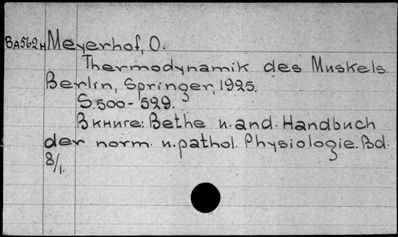 BA562H Meyerhof, O.
Thermodynamik des Muskels.
Berlin, Springer, 1925.
S.500-529.
В книге: Bethe u. and. Handbuch
der norm. u. pathol. Physiologie. Bd.
8/1.